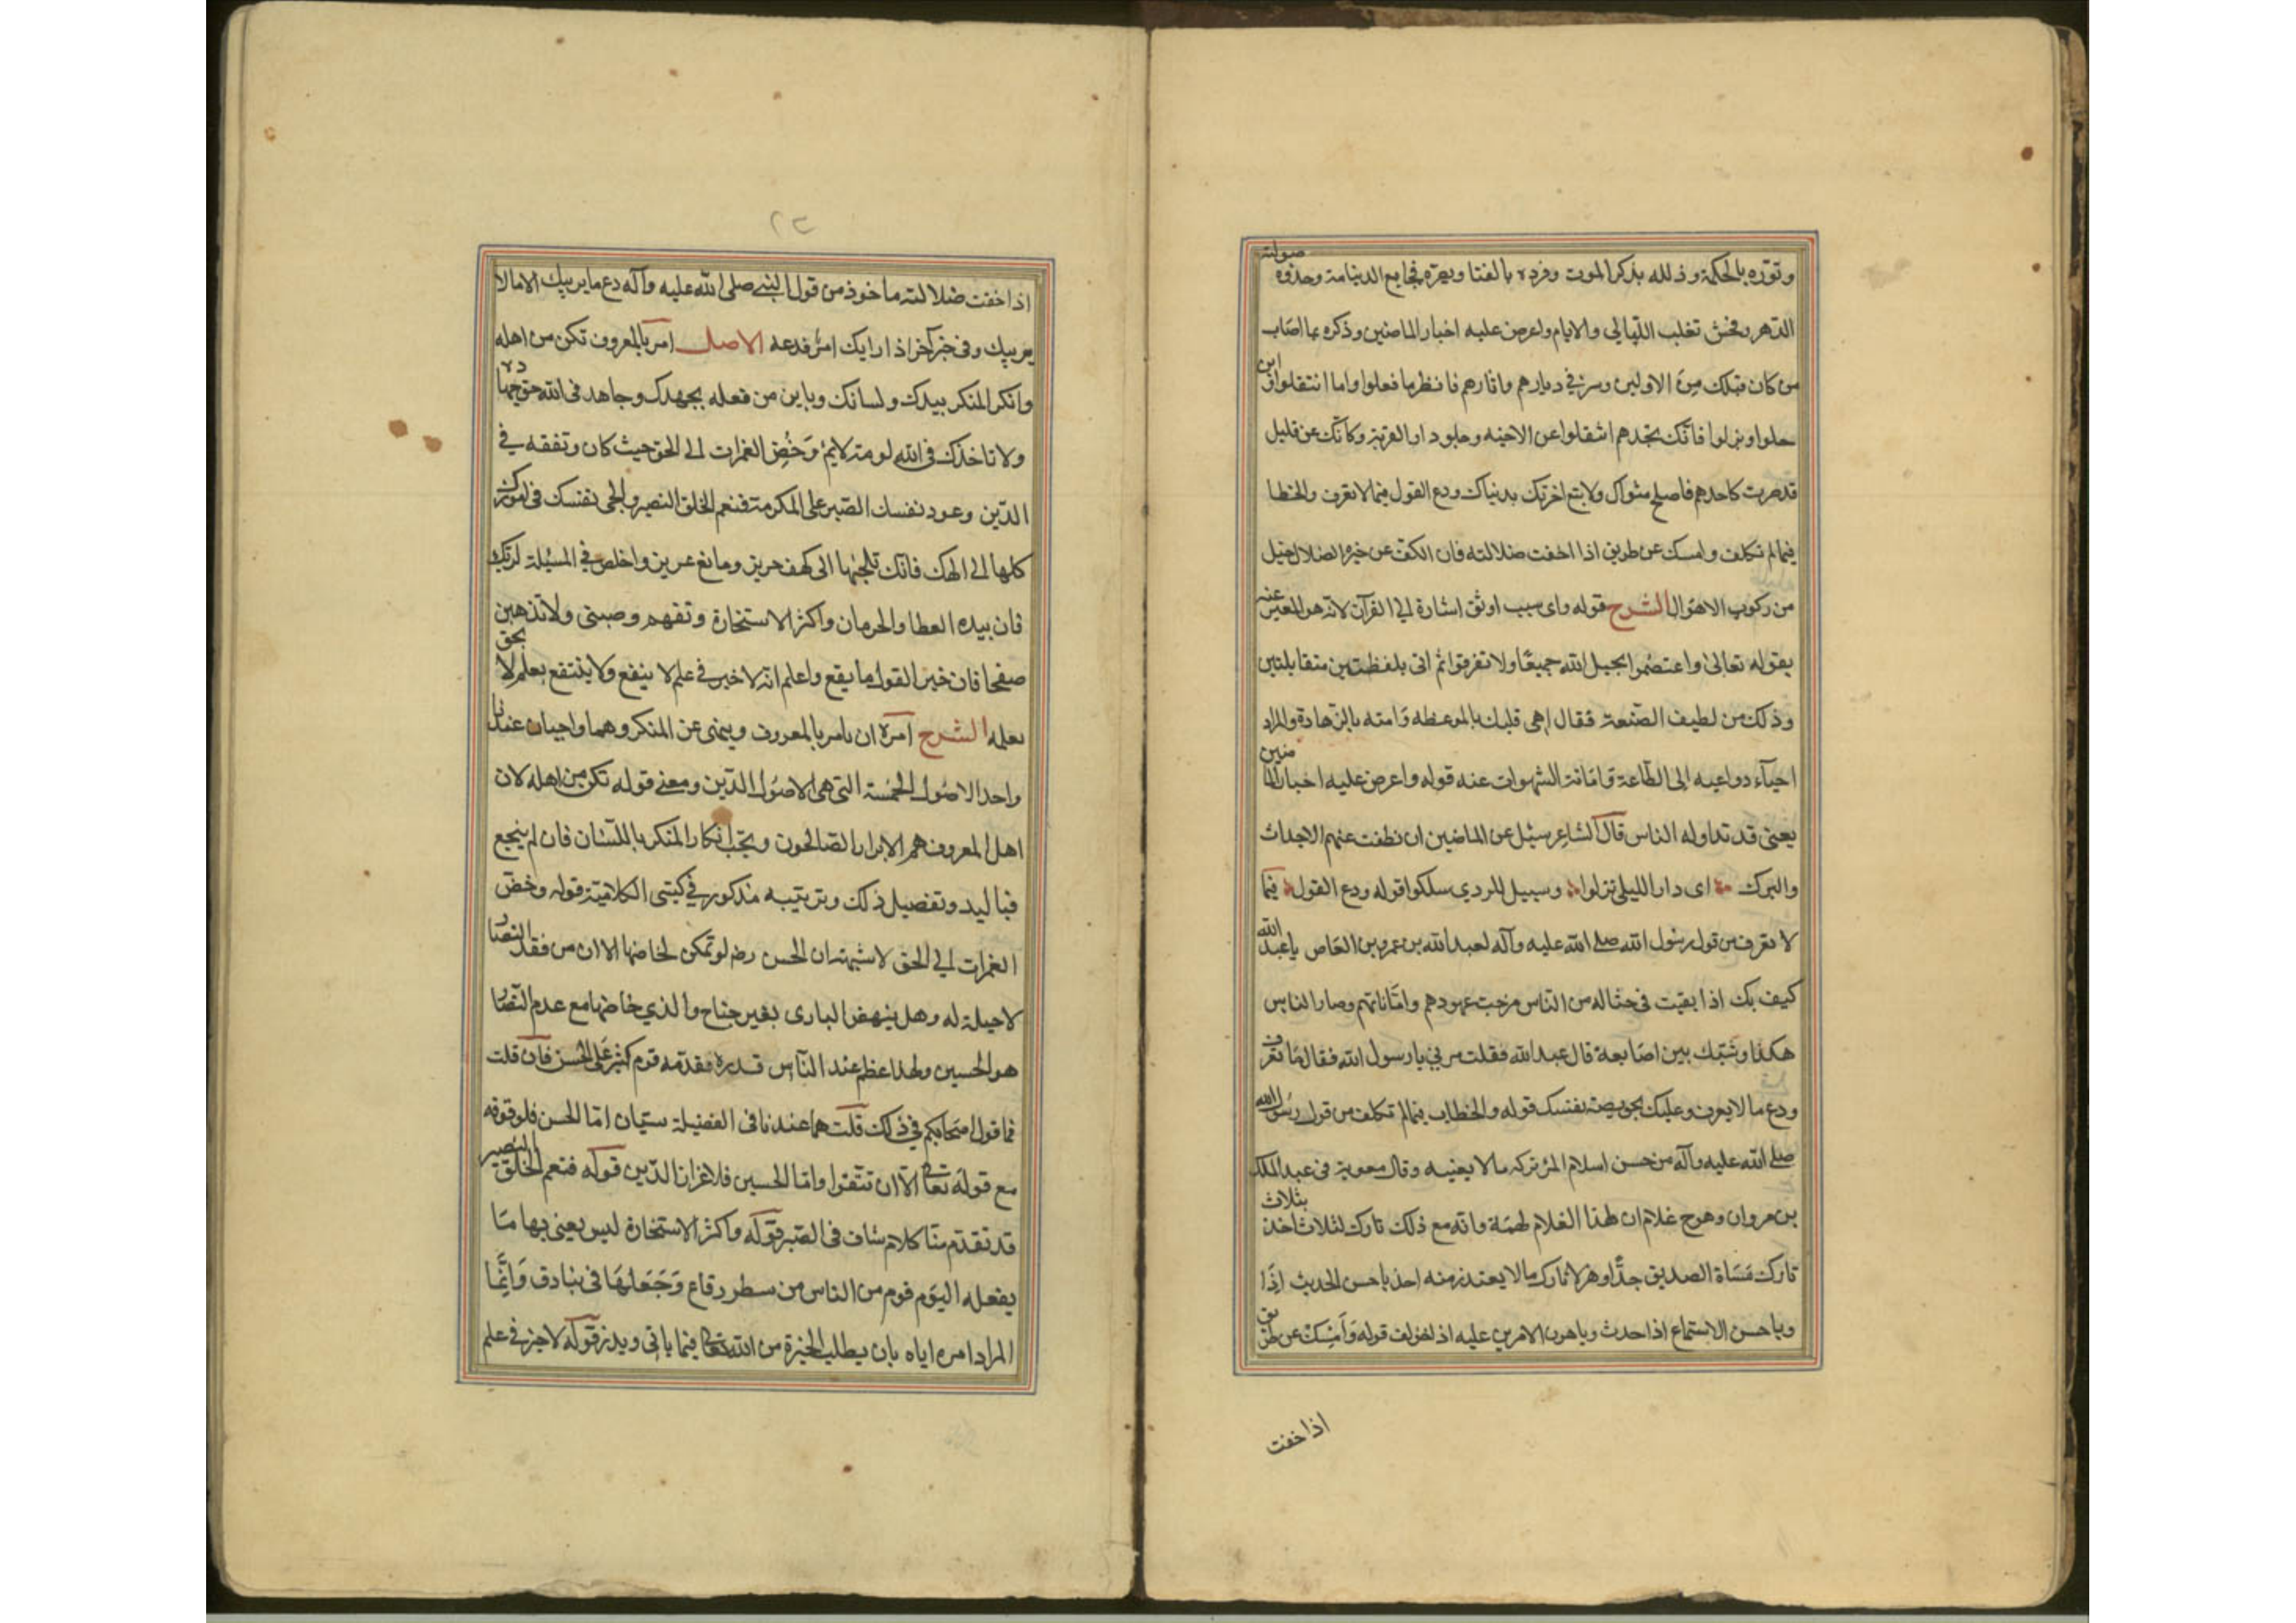 ونوره بالحكمة وذلله بذكر الموت وقرره بالفنا وبصره فجايع الدنيا منه وحذره صولته
الدهر وفحش تغلب الليالي والايام واعرض عليه اخبار الماضين وذكره بما اصاب
من كان قبلك من الاولين وسر في ديارهم واثارهم فانظر ما فعلوا واما انتقلوا واين
حلوا ونزلوا فانك تجدهم انتقلوا عن الاحبه وحلو دار الغربة وكانك عن قليل
قد صرت كاحدهم فاصلح مثواك ولا تبع اخرتك بدنياك ودع القول فيما لا تعرف والخطا
فيما لم تكلف وامسك عن طريق اذا خفت ضلالته فان الكف عن خيره الضلال خيل
من ركوب الاهوال الشرح قوله واى سبب اوثق اشارة الى القرآن لانه هو المعبر عنه
بقوله تعالى واعتصموا بحبل الله جميعا ولا تفرقوا ثم اتى بلفظتين متقابلتين
وذلك من لطيف الصنعة فقال احى قلبك بالموعظه وامته بالزهادة والمراد
احيآء دواعيه الى الطاعة واماتة الشهوات عنه قوله واعرض عليه اخبار الماضين
يعنى قد تداوله الناس قال الشاعر سئل عن الماضين ان نطقت عنهم الاجداث
والبرك اى دار للبلى نزلوا وسبيل للردي سلكوا قوله ودع القول فيما
لا تعرف من قول رسول الله صلى الله عليه وآله لعبد الله بن عمرو بن العاص يا عبد الله
كيف بك اذا بقيت في حثاله من الناس مرجت عهودهم واماناتهم وصار الناس
هكذا وشبك بين اصابعه قال عبد الله فقلت مرني يا رسول الله فقال ما تعرف
ودع ما لا يعرف وعليك بحويصة نفسك قوله والخطاب فيما لم تكلف من قول رسول الله
صلى الله عليه وآله من حسن اسلام المرء تركه ما لا يعنيه وقال معوية فى عبد الملك
بن مروان وهو ح غلام ان لهذا الغلام لهمة وانه مع ذلك تارك لثلاث اخذ بثلاث
تارك مساة الصديق جدا وهزلا تارك ما لا يعتذر منه اخذ باحسن الحديث اذا
وباحسن الاستماع اذا حدث وباهون الامرين عليه اذ اخولف قوله وامسك عن طريق
اذا خفت
اذا خفت ضلالته ماخوذ من قول النبى صلى الله عليه وآله دع ما يريبك الا ما لا
يريبك وفى خبر آخر اذا رابك امر فدعه الاصل امر بالمعروف تكن من اهله
وانكر المنكر بيدك ولسانك وباين من فعله بجهدك وجاهد فى الله حق جهاده
ولا تاخذك فى الله لومة لايم وخض الغمرات الى الحق حيث كان وتفقه في
الدين وعود نفسك الصبر على المكرمة فنعم الخلق النصير والجى نفسك فى امورك
كلها الى الهك فانك تلجئها الى كهف حريز ومانع عريز واخلص في المسئلة لربك
فان بيده العطا والحرمان واكثر الاستخارة وتفهم وصيتى ولا تذهبن
صفحا فان خير القول ما يقع واعلم انه لا خير في علم لا ينفع ولا ينتفع بعلم لا يحق
تعلمه الشرح امره ان يامر بالمعروف وينهى عن المنكر وهما واجبان عندنا
واحد الاصول الخمسة التى هى الاصول الدين ومعنى قوله تكن من اهله لان
اهل المعروف هم الابرار الصالحون ويجب انكار المنكر باللسان فان لم ينجع
فباليد وتفصيل ذلك وترتيبه مذكور في كتبى الكلامية قوله وخض
الغمرات الى الحق لا شبهة ان الحسن رض لو تمكن لخاضها الا ان من فقد النصار
لا حيلة له وهل ينهض البازى بغير جناح والذي خاضها مع عدم النصار
هو الحسين ولهذا عظم عند الناس قدره فقدمه قوم كثير على الحسن فان قلت
فما قول اصحابكم في ذلك قلت هما عندنا فى الفضيلة سيان اما الحسن فلوقوفه
مع قوله تعا الا ان تتقوا واما الحسين فلاعزاز الدين قوله فنعم الخلق النصير
قد تقدم منا كلام شاف فى الصبر قوله واكثر الاستخارة ليس يعنى بها ما
يفعله اليوم قوم من الناس من سطر رقاع وجعلها فى بنادق وانما
المراد امره اياه بان يطلب الخيرة من الله تعا فيما ياتى ويذر قوله لا خير في علم